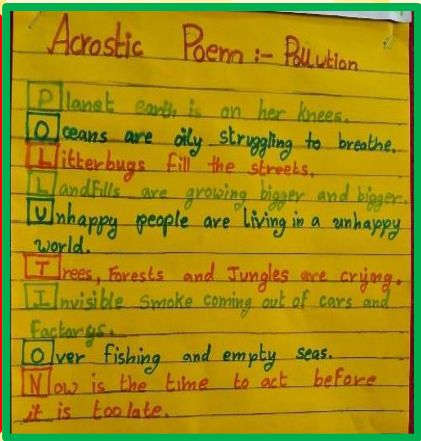 Acrostic Poem :- Pollution
Planet earth is on her knees.
Oceans are oily struggling to breathe.
Litterbugs fill the streets.
Landfills are growing bigger and bigger.
Unhappy people are living in a unhappy
world.
Trees, Forests and Jungles are crying.
Invisible Smoke coming out of cars and
factorys.
Over fishing and empty seas.
Now is the time to act before
it is too late.